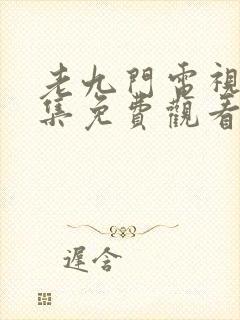 老九門電視
集免費觀看
遲含